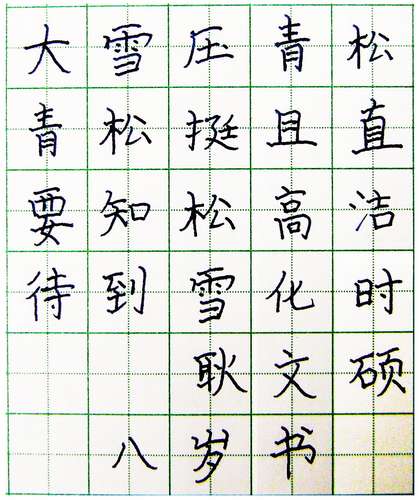 大雪压青松
青松挺且直
要知松高洁
待到雪化时
耿文硕
八岁书